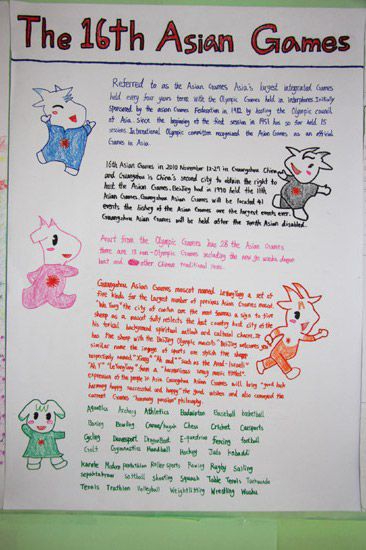 The 16th Asian Games
Referred to as the Asian Games Asia's largest integrated Games
held every four years terns with the Olympic Games held in Initially
sponsored by the asian Games Federation in 1982 by hosting the Olympic council
of Asia since the beginning of the first session in 1951 has so far held 15
sessions.International Olympic committee recognized the Asian Games as an official
Games in Asia.
16th Asian Games in 2010 November 12-27 in Guangzhou China
and Guangzhou is China's second city to obtain the right to
host the Asian Games.Beijing had in 1990 held the 11th
Asian Games.Guangzhou Asian Games will be 41
events the history of the Asian Games are the largest events ever.
Guangzhou Asian Games will be held after the Tenth Asian disabled.
Apart from the Olympic Games has 28 the Asian Games
there are 13 non-Olympic Games including the new dragon
boat and other Chinese traditional items.
Guangzhou Asian Games mascot named LeYangYang a set of
five kinds for the largest number of previous Asian Games mascot.
"Wu Yang" the city of canton are the most famous a sign to five
sheep as a mascot fully reflects the host country host city of the
his torical background spiritual outlook and cultural charm. It
has five sheep with the BeiJing Olympic mascots "BeiJing welcomes you"
similar name the of sports are stylish five sheep
respectively named "Xiang" "Ah and" "such as the
"Ah Y" "LeYangYang" from a "harmonious
expression of the people in Asia Guangzhou Asian Games will bring "good luck
harmony happy successful and happy" the good wishes and also conveyed the
current Games "harmony passion" philosophy.
Aquatics Archery Athletics Badminton Baseball basketball
Boxing Bowling Canoe/kayak Chess Cricket Cuesports
Cycling Dancesport DragonBoat E-questrian fencing football
Golf Gymnastics Handball Hockey Judo Kabaddi
Karate Modern pentathlon Roller sports Rowing Rugby Sailing
sepaktakraw softball Shooting Squash Table Tennis Taekwondo
Tennis Triathlon Volleyball Weightlifting Wrestling Wushu